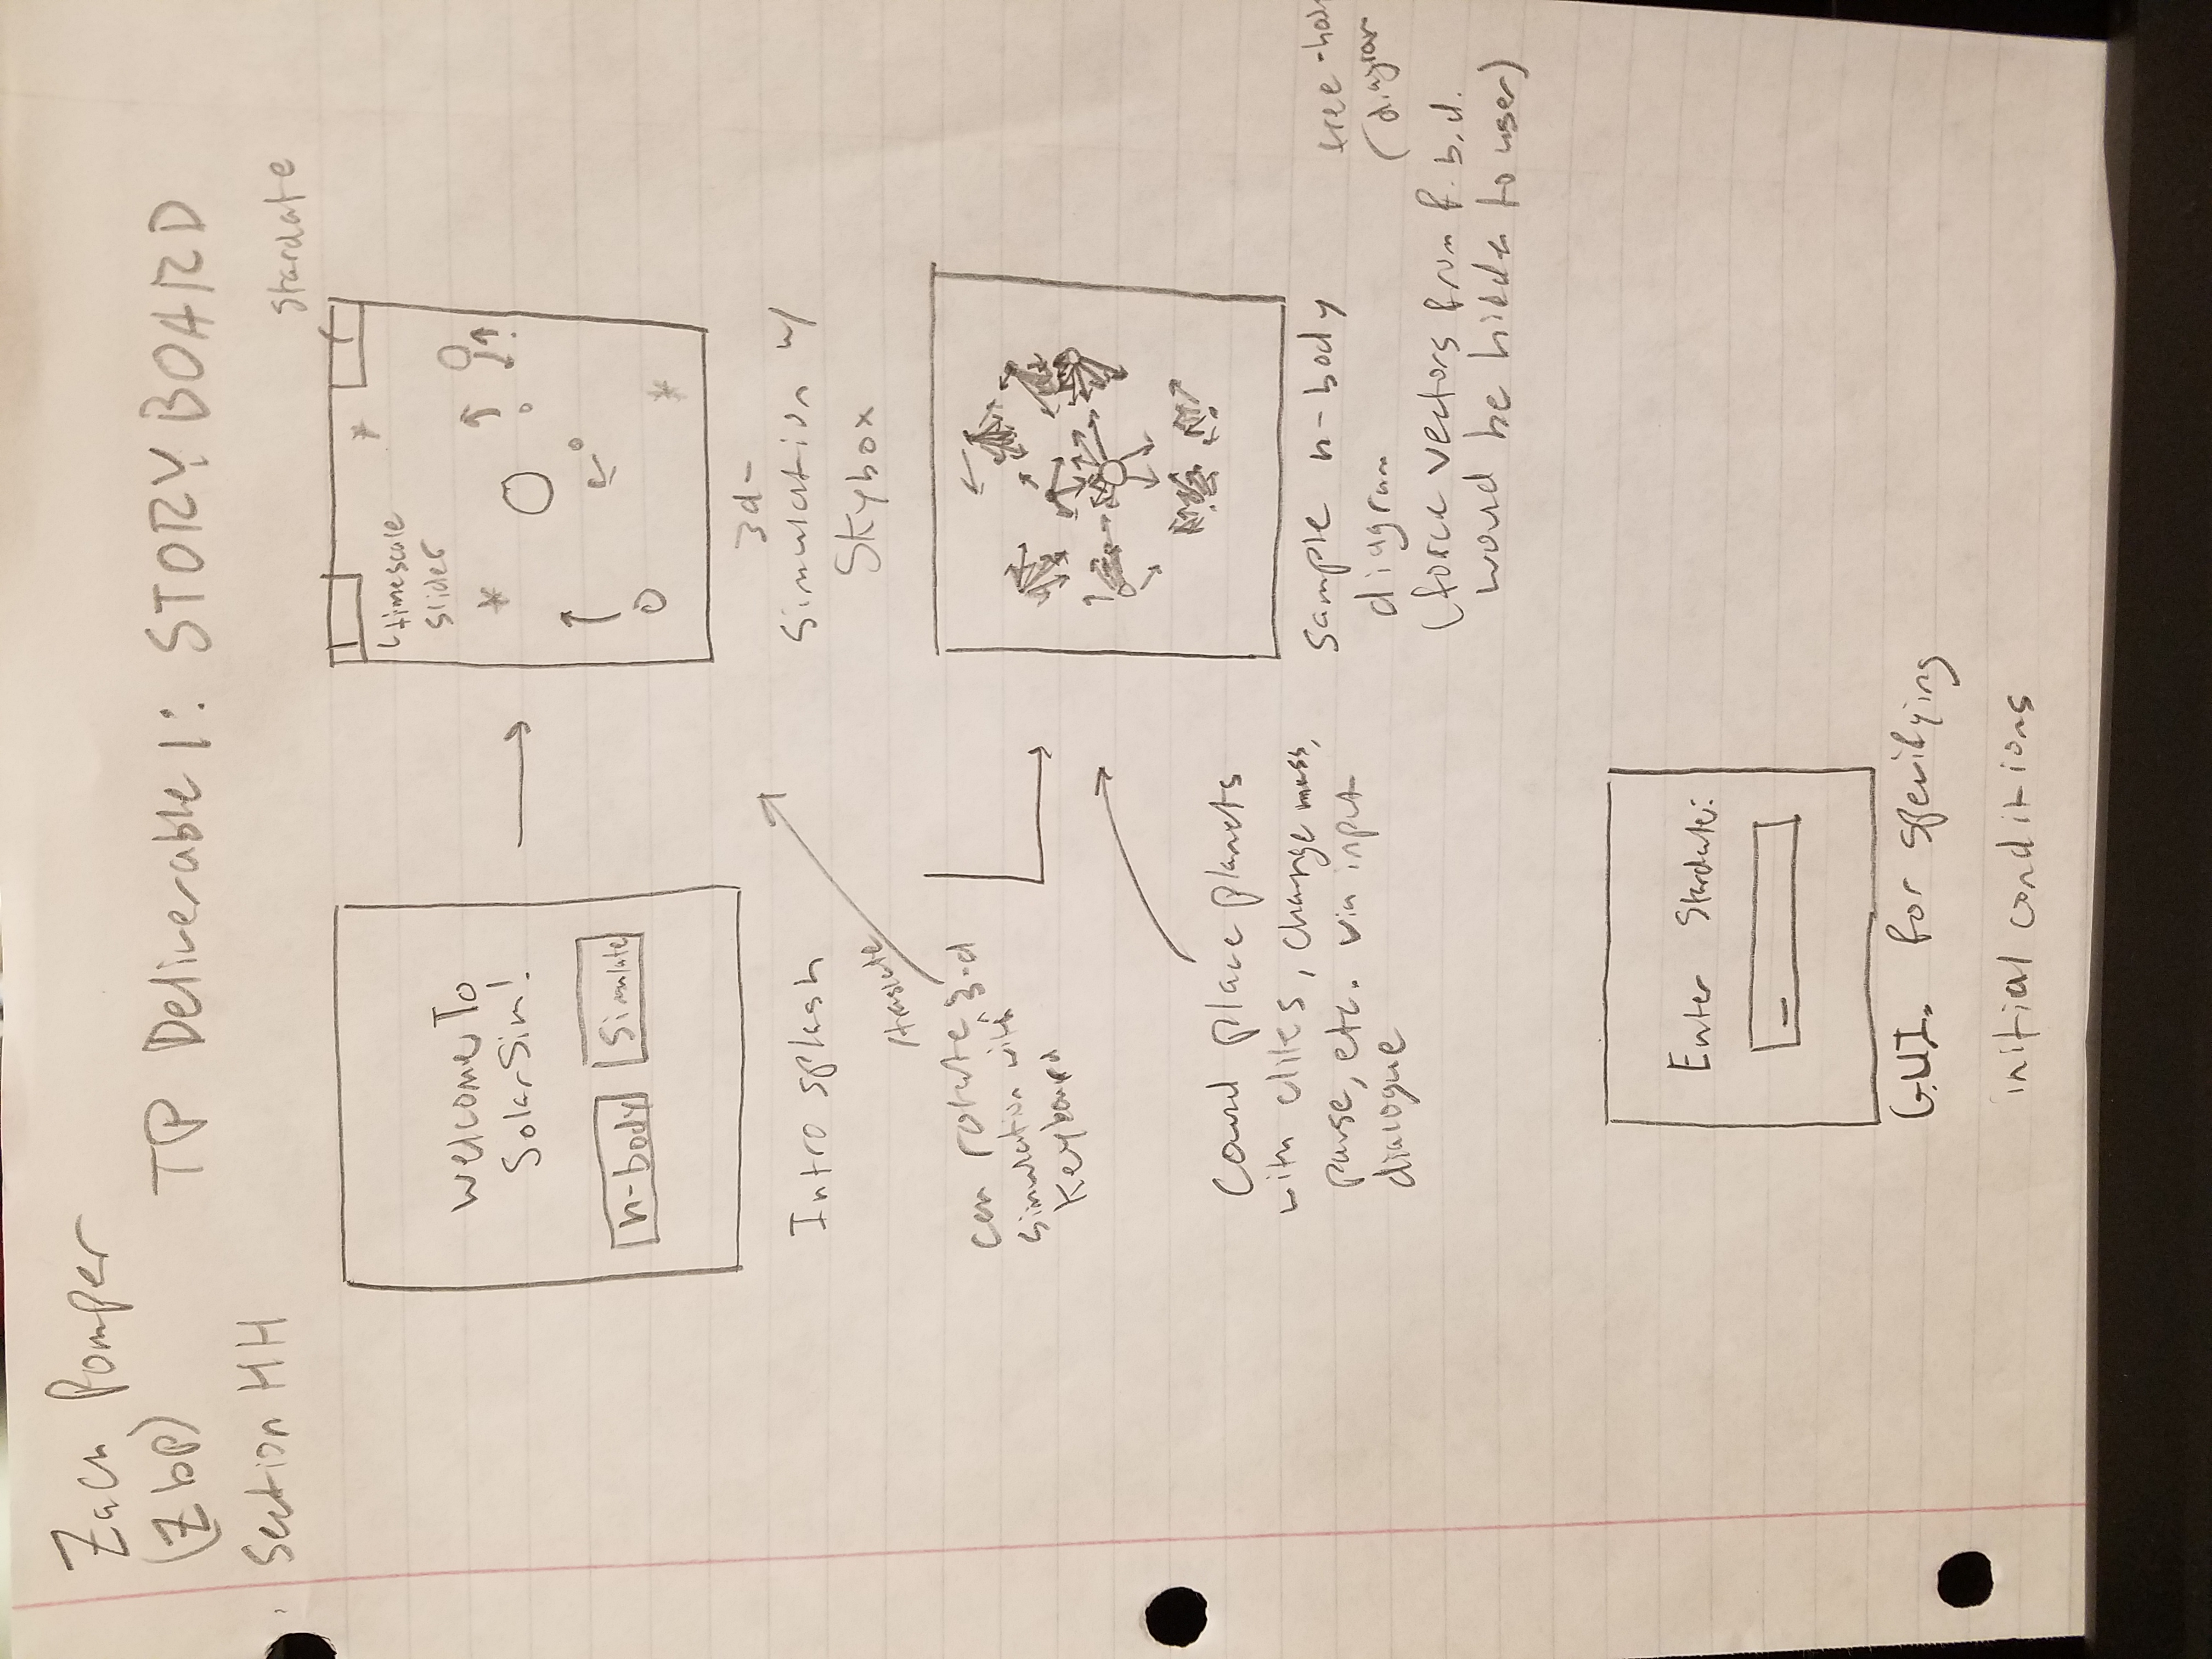 Zach Pomper
(zbp)
Section HH
TP Deliverable 1: STORYBOARD
Stardate
timescale
slider
Welcome To
SolarSim!
n-body
Simulate
Intro splash
3d-
Simulation w/
Skybox
/translate
can rotate 3-d
simulation with
keyboard
Could place planets
with cliks, change mass,
pause, etc. via input
dialogue
Sample n-body
diagram
free-body
diagram
(force vectors from f.b.d.
would be hidden to user)
Enter Stardate:
G.U.I. for specifying
initial conditions